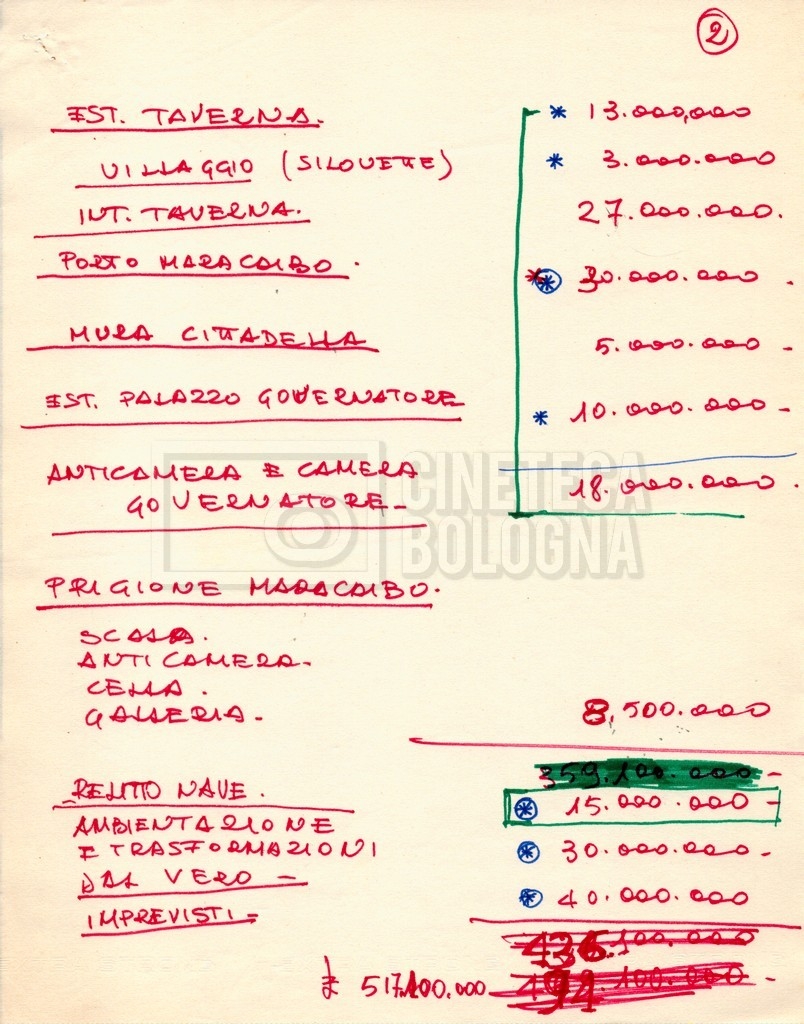 2
EST. TAVERNA. * 13.000,000
VILLAGGIO (SILOUETTE) * 3.000.000
INT. TAVERNA. 27.000.000.
PORTO MARACAIBO. * * 30.000.000.
MURA CITTADELLA 5.000.000 -
EST. PALAZZO GOVERNATORE * 10.000.000-
ANTICAMERA E CAMERA
GOVERNATORE- 18.000.000.
CINETECA
BOLOGNA
PRIGIONE MARACAIBO.
SCALA.
ANTICAMERA-
CELLA.
GALLERIA- 8,500.000
359.100.000-
RELITTO NAVE. * 15.000.000-
AMBIENTAZIONE
E TRASFORMAZIONI * 30.000.000-
DAL VERO - * 40.000.000
IMPREVISTI=
.100.000
£ 517.100.000- .100.000-